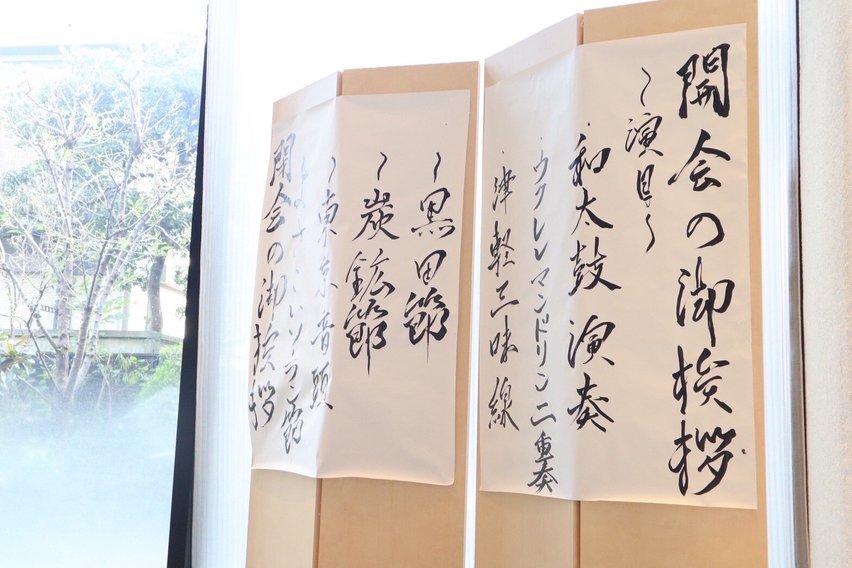 開会の御挨拶
~演目~
・和太鼓演奏
・ウクレレマンドリン二重奏
・津軽三味線
~黒田節
~炭鉱節
~東京音頭
ソーラン節
閉会の御挨拶